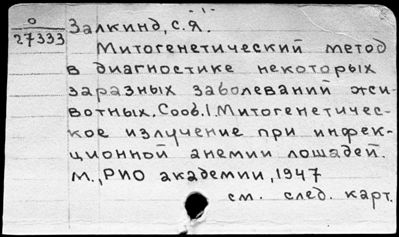 - 1 -
0
27333
Залкинд, С.Я.
Митогенетический метод
в диагностике некоторых
заразных заболеваний жи-
вотных. Сооб. 1. Митогенетичес-
кое излучение при инфек-
ционной анемии лошадей.
М., РИО академии, 1947
см. след. карт.